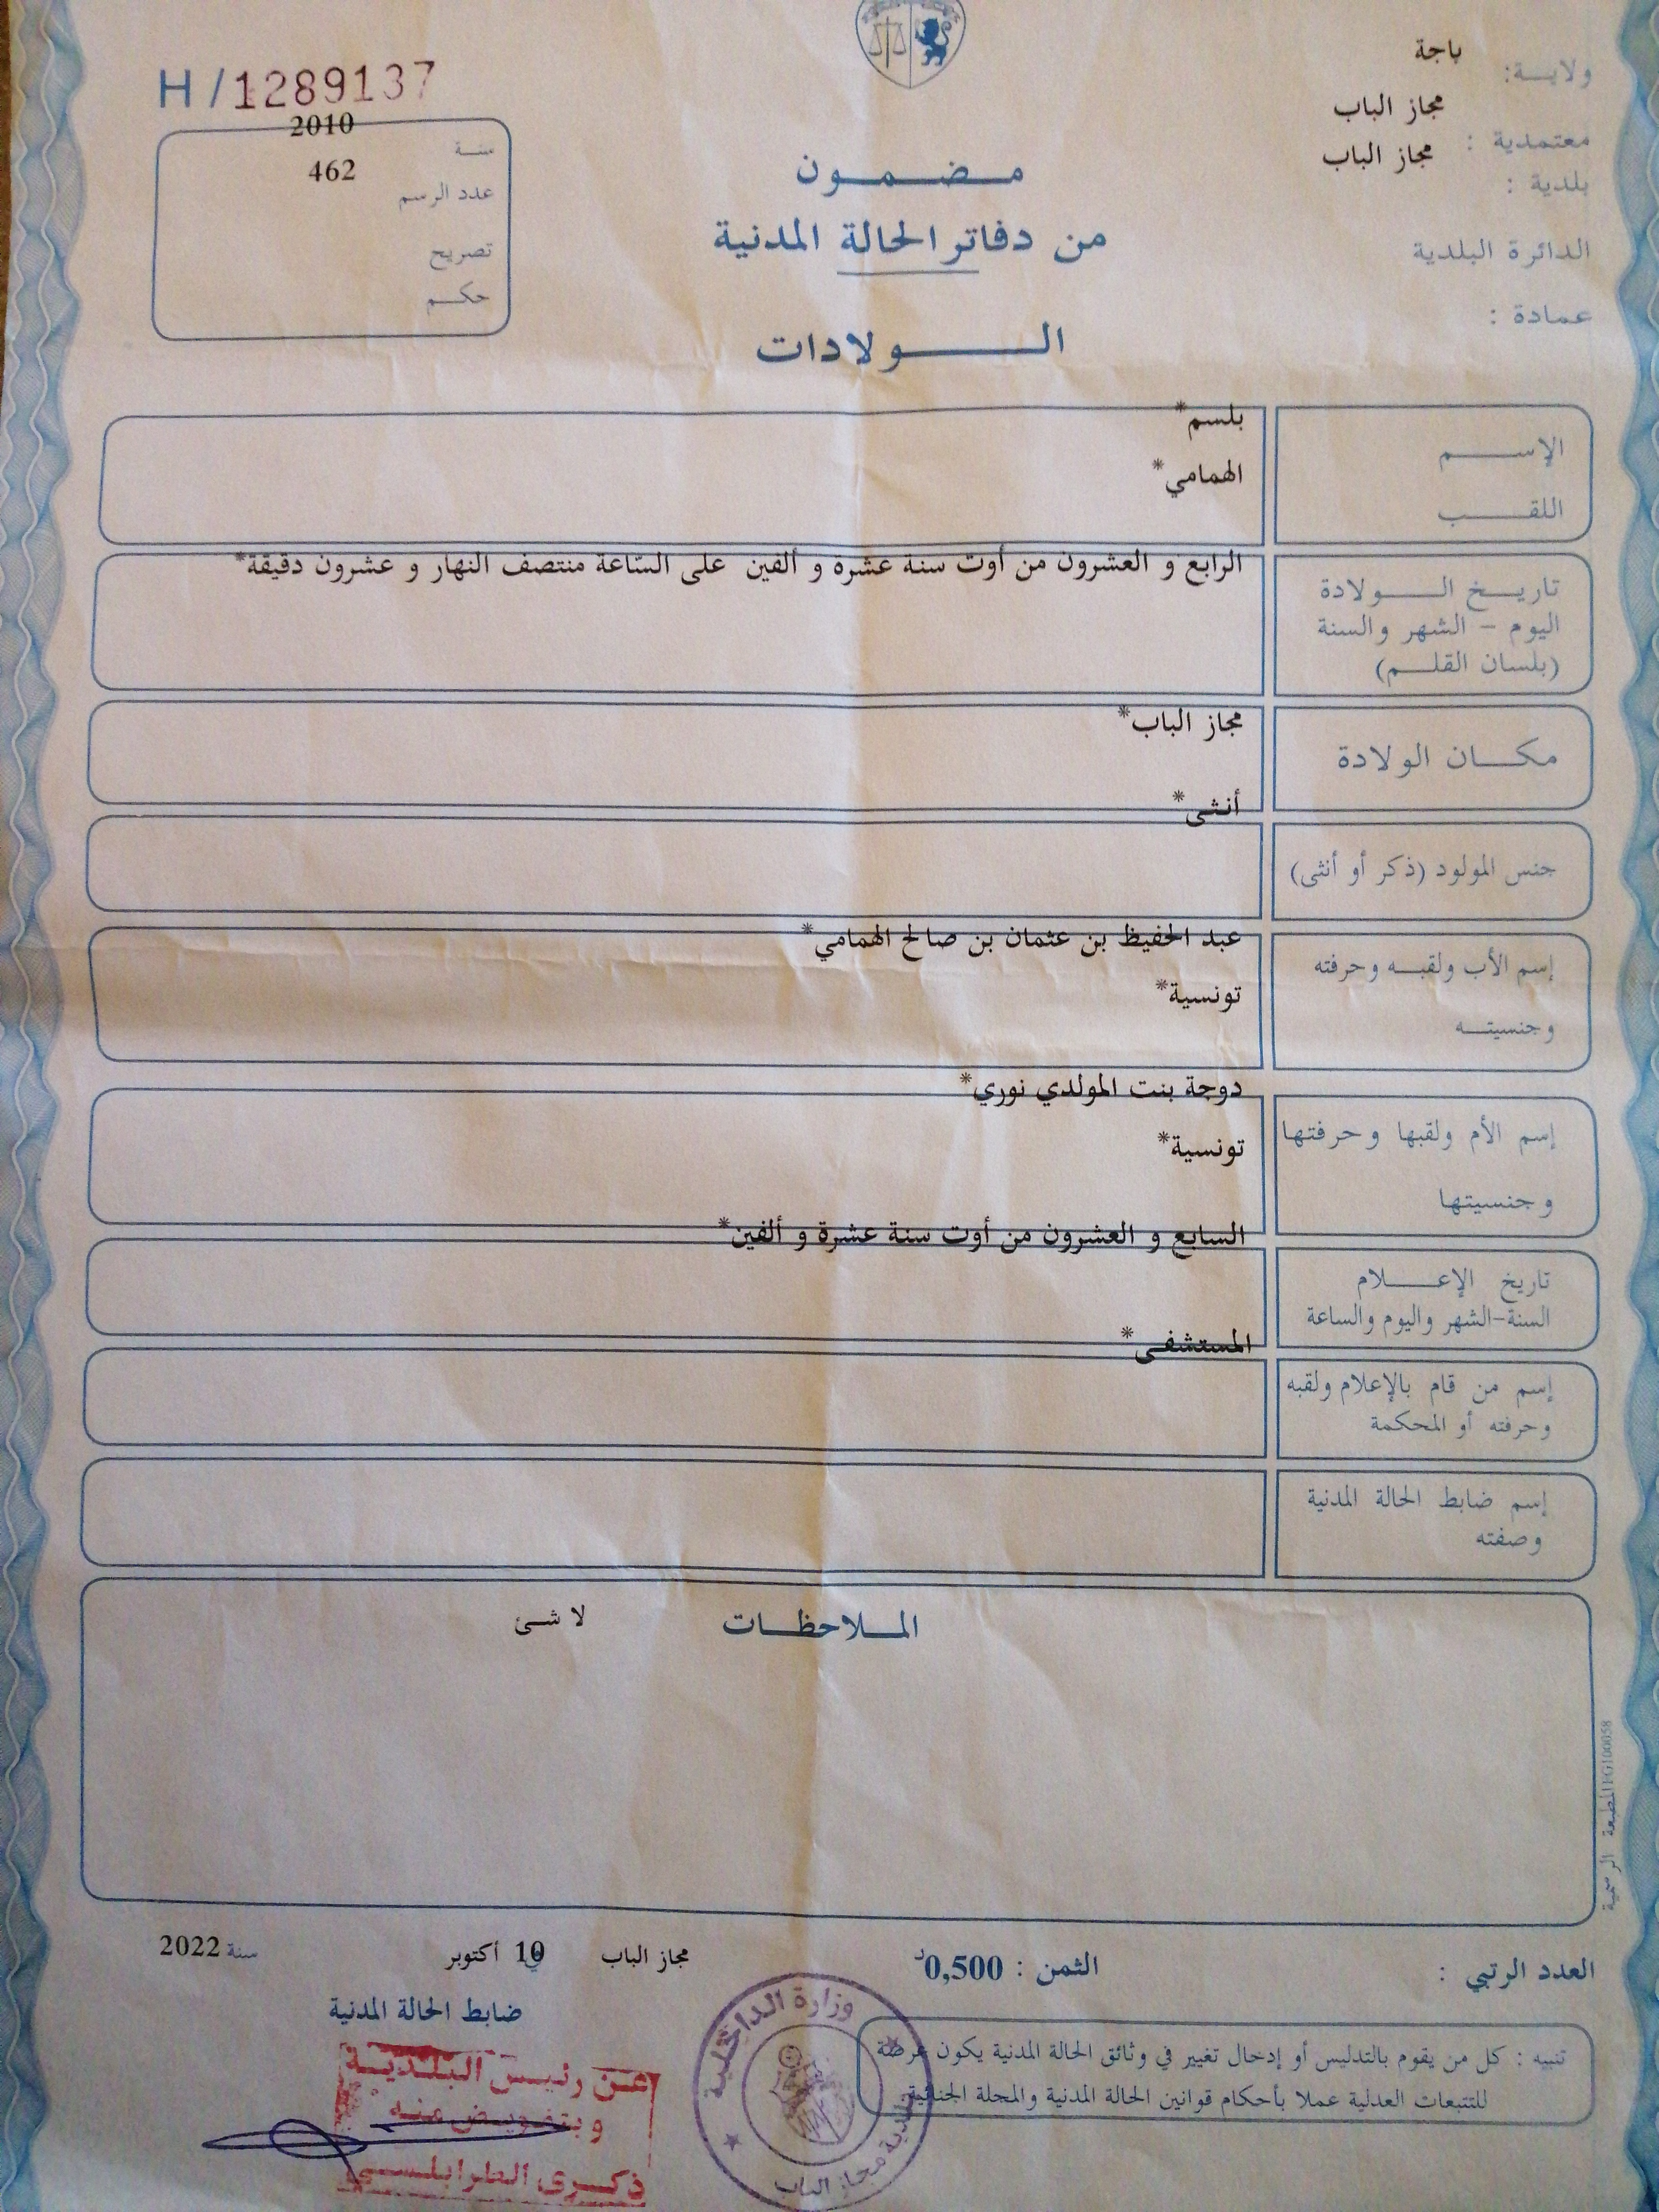 ولاية: باجة
معتمدية : مجاز الباب
بلدية : مجاز الباب
الدائرة البلدية
عمادة :
H/1289137
سنة 2010
عدد الرسم 462
تصريح
حكم
مضمون
من دفاتر الحالة المدنية
الولادات
الإسم بلسم*
اللقب الهمامي*
تاريخ الولادة
اليوم - الشهر والسنة
(بلسان القلم)
الرابع و العشرون من أوت سنة عشرة و ألفين على السّاعة منتصف النهار و عشرون دقيقة*
مكان الولادة مجاز الباب*
جنس المولود (ذكر أو أنثى) أنثى*
إسم الأب ولقبه وحرفته عبد الحفيظ بن عثمان بن صالح الهمامي*
وجنسيته تونسية*
إسم الأم ولقبها وحرفتها دوجة بنت المولدي نوري*
وجنسيتها تونسية*
تاريخ الإعلام السابع و العشرون من أوت سنة عشرة و ألفين*
السنة-الشهر واليوم والساعة
إسم من قام بالإعلام ولقبه المستشفى*
وحرفته أو المحكمة
إسم ضابط الحالة المدنية
وصفته
الملاحظات لا شئ
المطبعة الرسمية
العدد الرتبي :
الثمن : 0,500د
مجاز الباب في 10 أكتوبر سنة 2022
ضابط الحالة المدنية
تنبيه : كل من يقوم بالتدليس أو إدخال تغيير في وثائق الحالة المدنية يكون عرضة
للتتبعات العدلية عملا بأحكام قوانين الحالة المدنية والمجلة الجنائية
وزارة الداخلية
بلدية مجاز الباب
عن رئيس البلدية
وبتفويض منه
ذكرى الطرابلسي